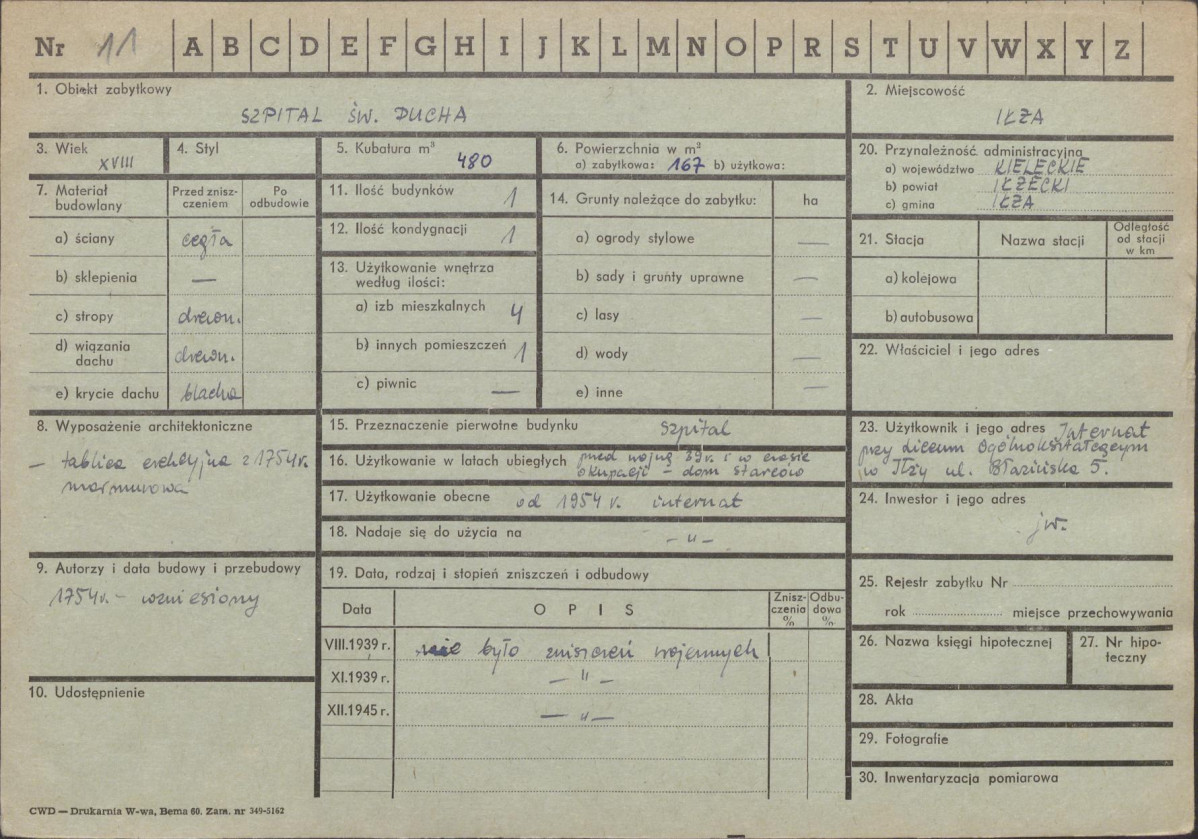 Nr 11 A B C D E F G H I J K L M N O P R S T U V W X Y Z
1. Obiekt zabytkowy
SZPITAL ŚW. DUCHA
2. Miejscowość
IŁŻA
3. Wiek
XVIII
4. Styl
5. Kubatura m³
480
6. Powierzchnia w m²
a) zabytkowa: 167 b) użytkowa:
7. Materiał budowlany
Przed zniszczeniem
Po odbudowie
a) ściany cegła
b) sklepienia —
c) stropy drewn.
d) wiązania dachu drewn.
e) krycie dachu blacha
8. Wyposażenie architektoniczne
— tablica erekcyjna z 1754 r.
marmurowa
9. Autorzy i data budowy i przebudowy
1754 r. – wzniesiony
10. Udostępnienie
11. Ilość budynków 1
12. Ilość kondygnacji 1
13. Użytkowanie wnętrza
według ilości:
a) izb mieszkalnych 4
b) innych pomieszczeń 1
c) piwnic —
14. Grunty należące do zabytku: ha
a) ogrody stylowe —
b) sady i grunty uprawne —
c) lasy —
d) wody —
e) inne —
15. Przeznaczenie pierwotne budynku szpital
16. Użytkowanie w latach ubiegłych przed wojną 39 r. i w czasie
okupacji – dom starców
17. Użytkowanie obecne od 1954 r. internat
18. Nadaje się do użycia na – „ –
19. Data, rodzaj i stopień zniszczeń i odbudowy
Data OPIS Zniszczenia % Odbudowa %
VIII.1939 r. nie było zniszczeń wojennych
XI.1939 r. — " —
XII.1945 r. — „ —
20. Przynależność administracyjna
a) województwo KIELECKIE
b) powiat IŁŻECKI
c) gmina IŁŻA
21. Stacja Nazwa stacji Odległość od stacji w km
a) kolejowa
b) autobusowa
22. Właściciel i jego adres
23. Użytkownik i jego adres Internat
przy Liceum Ogólnokształcącym
w Iłży ul. Błazińska 5.
24. Inwestor i jego adres
jw.
25. Rejestr zabytku Nr
rok miejsce przechowywania
26. Nazwa księgi hipotecznej
27. Nr hipoteczny
28. Akta
29. Fotografie
30. Inwentaryzacja pomiarowa
CWD — Drukarnia W-wa, Bema 60. Zam. nr 349-5162